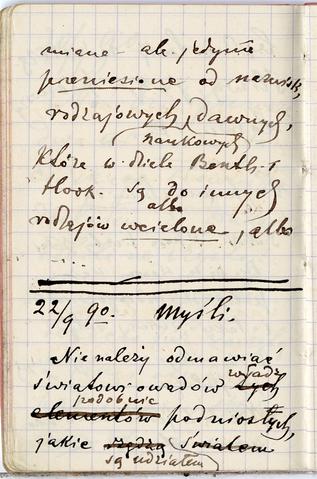 miane - ale jedynie
przeniesione od nazwisk,
rodzajowych, dawnych,
naukowych
które w dziele Benth. i
Hook. są do innych
albo
rodzajów wcielone, albo
...
22/9 90. Myśli.
Nie należy odmawiać
światowi owadów tych wzgl.
podobnie
elementów podniosłych,
jakie rządzą światem
są udziałem